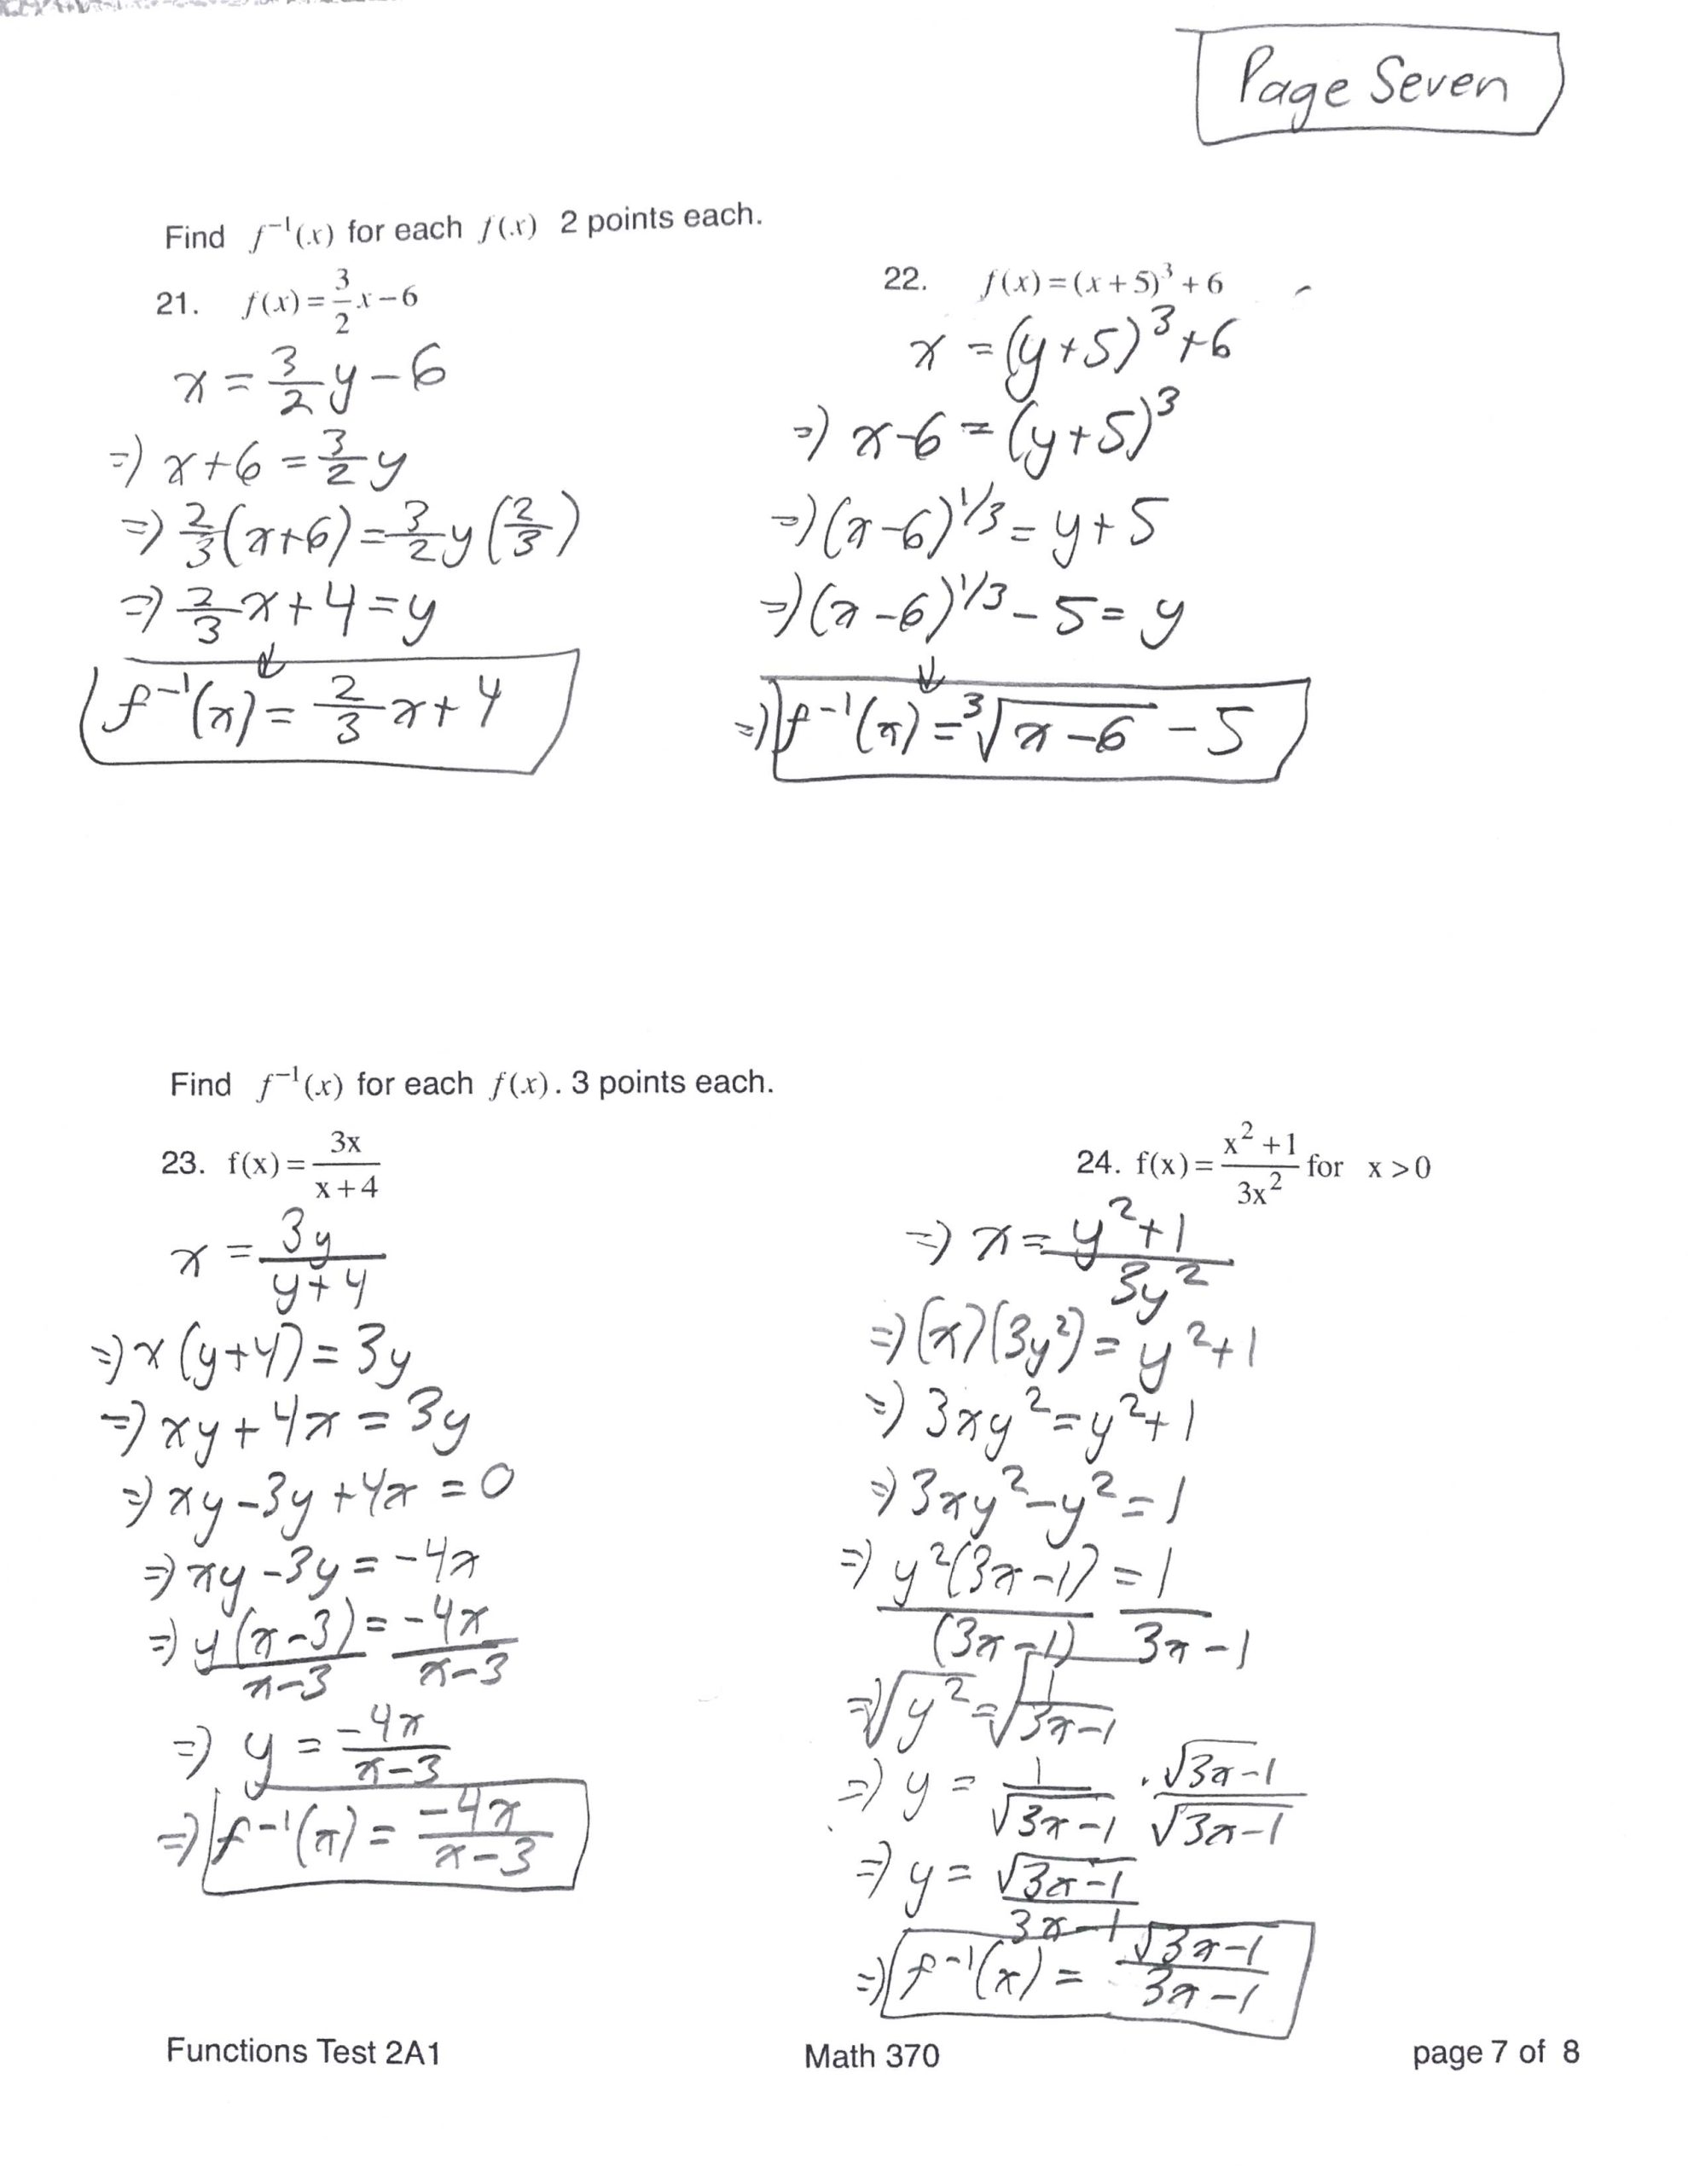 Page Seven
Find f⁻¹(x) for each f(x) 2 points each.
21. f(x) = 3/2 x − 6
x = 3/2 y − 6
⇒ x + 6 = 3/2 y
⇒ 2/3 (x + 6) = 3/2 y (2/3)
⇒ 2/3 x + 4 = y
↓
f⁻¹(x) = 2/3 x + 4
22. f(x) = (x + 5)³ + 6
x = (y + 5)³ + 6
⇒ x − 6 = (y + 5)³
⇒ (x − 6)^1/3 = y + 5
⇒ (x − 6)^1/3 − 5 = y
↓
⇒ f⁻¹(x) = ³√(x − 6) − 5
Find f⁻¹(x) for each f(x). 3 points each.
23. f(x) = 3x / (x + 4)
x = 3y / (y + 4)
⇒ x (y + 4) = 3y
⇒ xy + 4x = 3y
⇒ xy − 3y + 4x = 0
⇒ xy − 3y = −4x
⇒ y (x − 3) / (x − 3) = −4x / (x − 3)
⇒ y = −4x / (x − 3)
⇒ f⁻¹(x) = −4x / (x − 3)
24. f(x) = (x² + 1) / 3x² for x > 0
⇒ x = (y² + 1) / 3y²
⇒ (x)(3y²) = y² + 1
⇒ 3xy² = y² + 1
⇒ 3xy² − y² = 1
⇒ y²(3x − 1) / (3x − 1) = 1 / (3x − 1)
⇒ √y² = √(1 / (3x − 1))
⇒ y = 1 / √(3x − 1) · √(3x − 1) / √(3x − 1)
⇒ y = √(3x − 1) / (3x − 1)
⇒ f⁻¹(x) = √(3x − 1) / (3x − 1)
Functions Test 2A1
Math 370
page 7 of 8